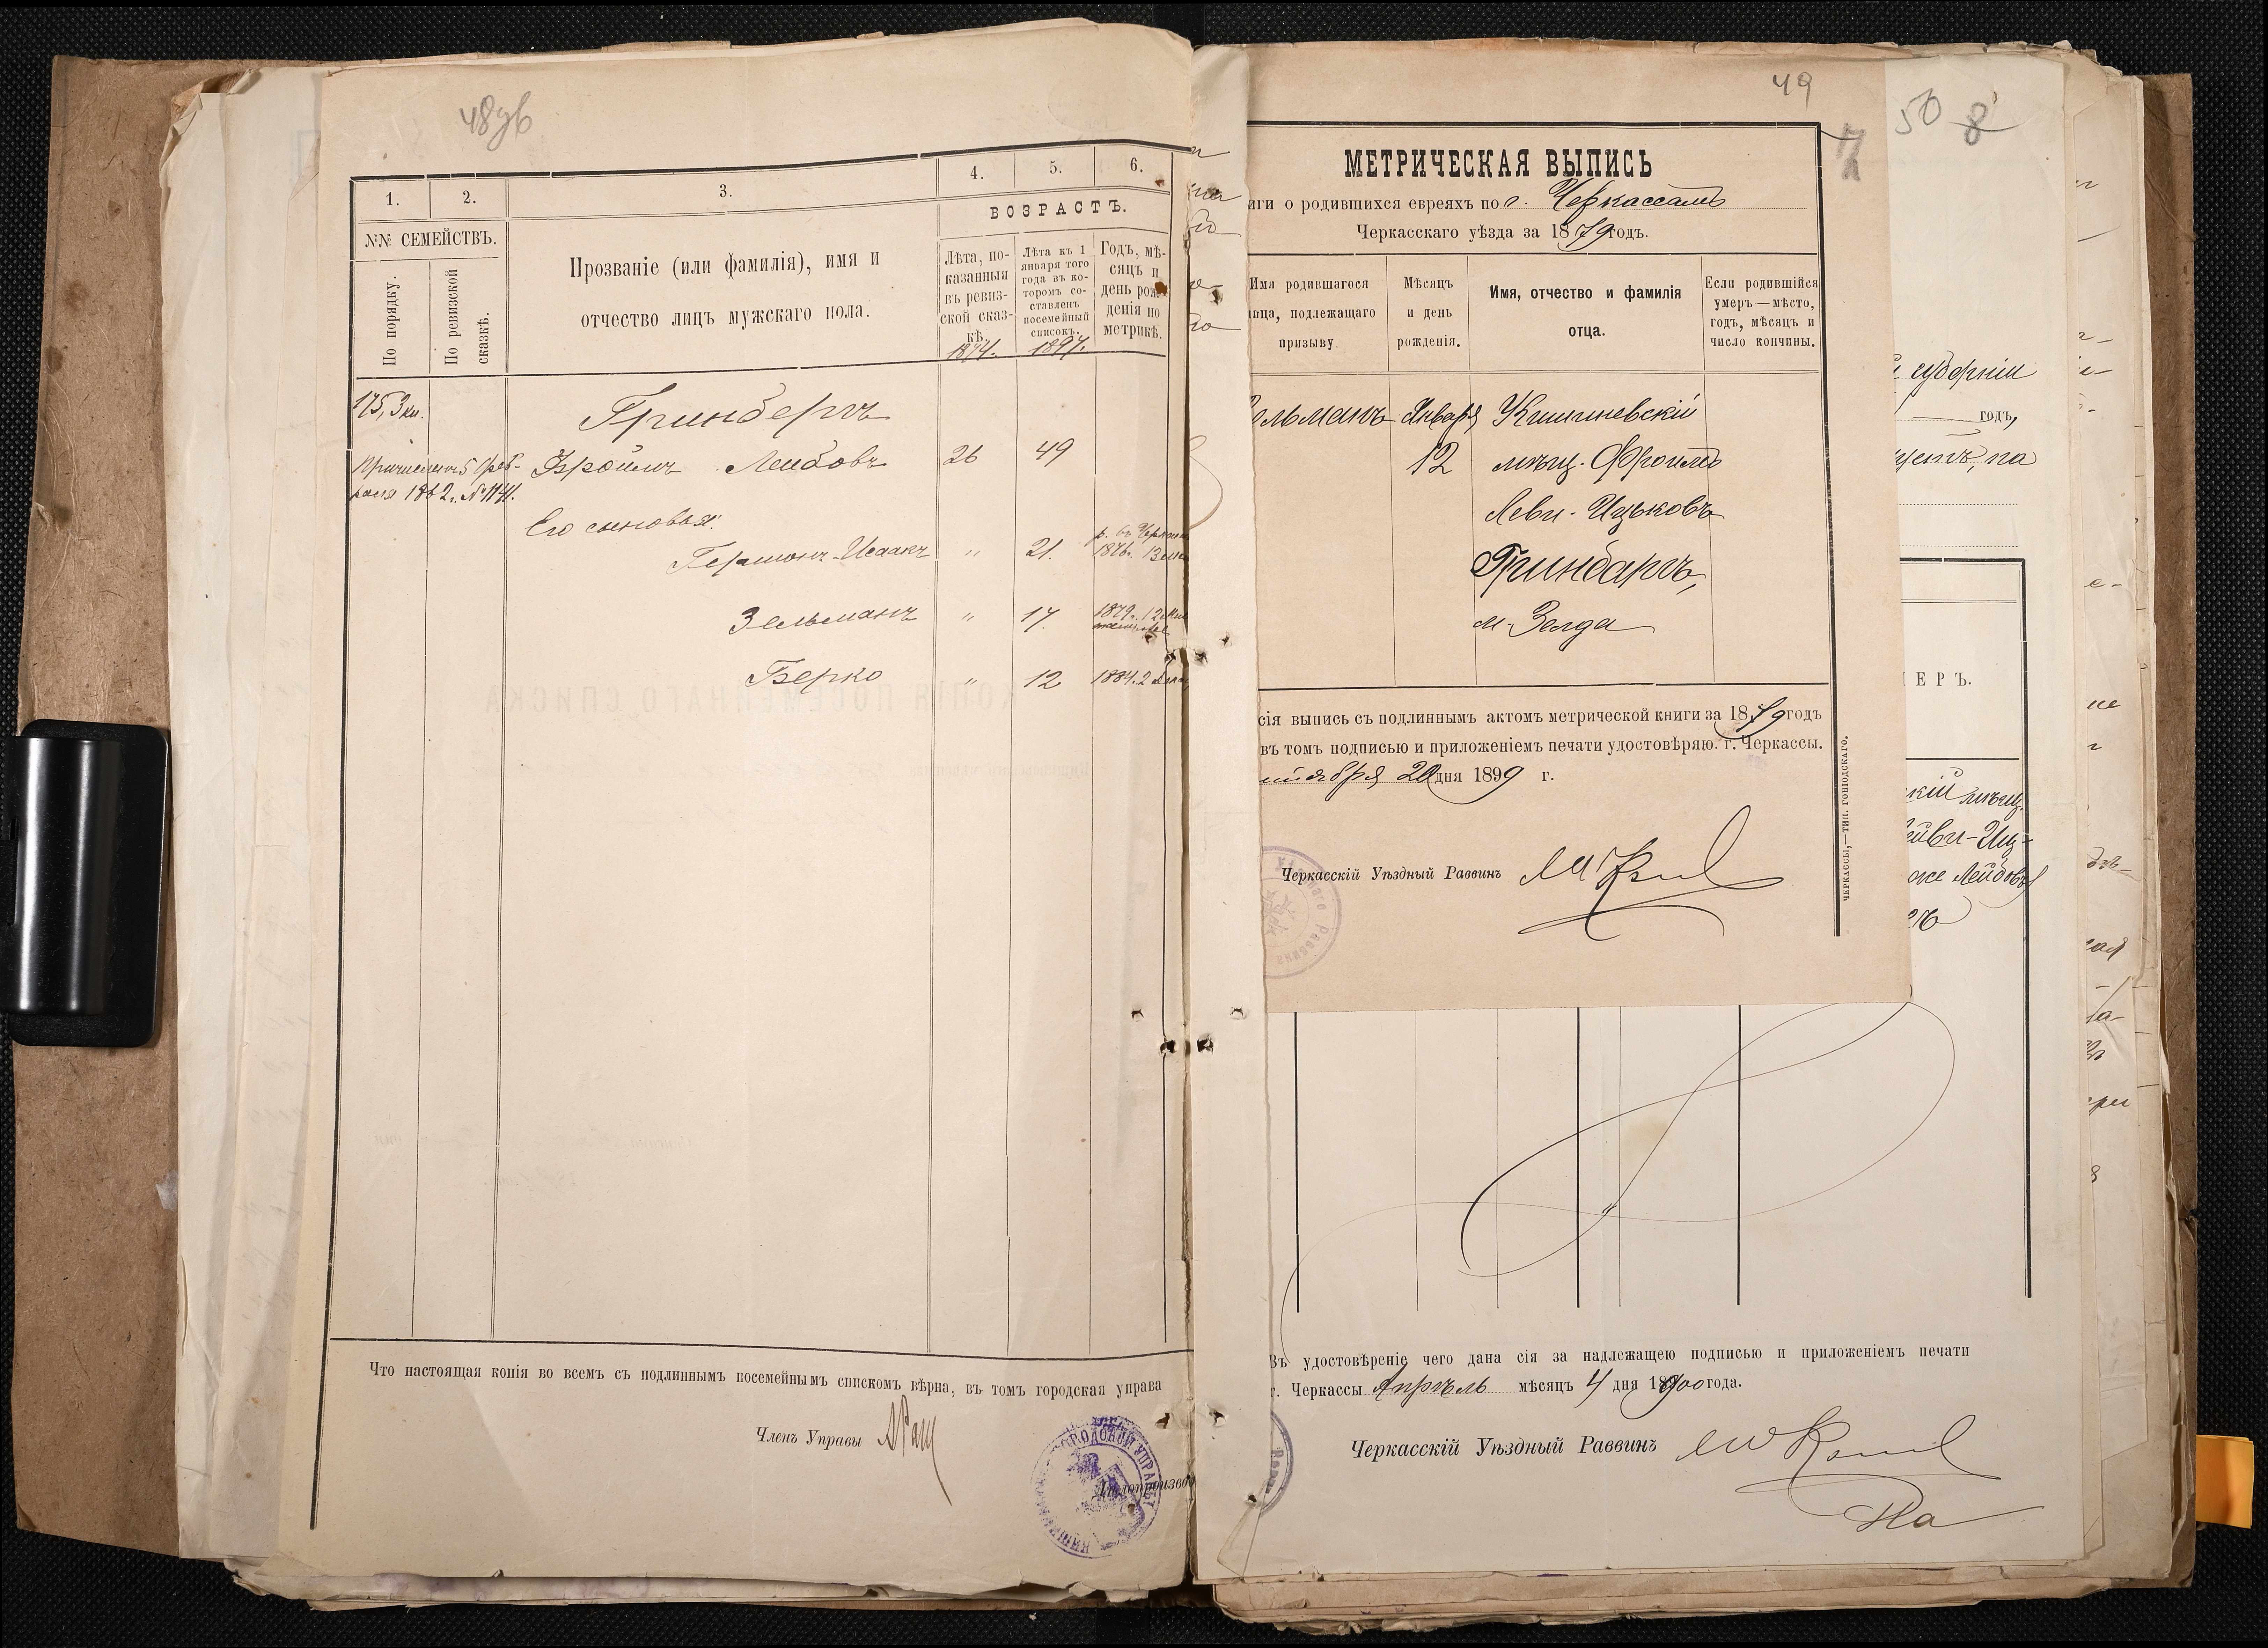 48об
1.
2.
3.
4.
5.
6.
№№ СЕМЕЙСТВЪ.
По порядку.
По ревизской
сказкѣ.
Прозваніе (или фамилія), имя и
отчество лицъ мужскаго пола.
ВОЗРАСТЪ.
Лѣта, по-
казанныя
въ ревиз-
ской сказ-
кѣ.
1874.
Лѣта къ 1
января того
года въ ко-
торомъ со-
ставленъ
посемейный
списокъ.
1897.
Годъ, мѣ-
сяцъ и
день рож-
денія по
метрикѣ.
175, 3 кн.
Гринбергъ
Фройлъ Лейбовъ 26 49
1862 г. № 1141.
Его сыновья:
Гершонъ-Исаакъ " 21.
1876.
Зельманъ " 17.
1879. 12
Берко " 12 1884. 2
Что настоящая копія во всемъ съ подлиннымъ посемейнымъ спискомъ вѣрна, въ томъ городская управа
Членъ Управы
Дѣлопроизво
49
МЕТРИЧЕСКАЯ ВЫПИСЬ
иги о родившихся евреяхъ по г. Черкассамъ
Черкасскаго уѣзда за 1879 годъ.
Имя родившагося
лица, подлежащаго
призыву.
Мѣсяцъ
и день
рожденія.
Имя, отчество и фамилія
отца.
Если родившійся
умеръ—мѣсто,
годъ, мѣсяцъ и
число кончины.
ельманъ Января Кишиневскій
12 мѣщ. Фроимъ
Леви-Ицьковъ
Гринбаргъ,
м-Зелда
сія выпись съ подлиннымъ актомъ метрической книги за 1879 годъ
въ томъ подписью и приложеніемъ печати удостовѣряю. г. Черкассы.
20 дня 1899 г.
Черкасскій Уѣздный Раввинъ
ЧЕРКАССЫ,—ТИП. ГОРОДСКАГО.
50 8
губерніи
годъ,
на
ЕРЪ.
кій мѣщ.
ейви-Иц-
оже Лейбовъ
Въ удостовѣреніе чего дана сія за надлежащею подписью и приложеніемъ печати
г. Черкассы Апрѣль мѣсяцъ 4 дня 1900 года.
Черкасскій Уѣздный Раввинъ